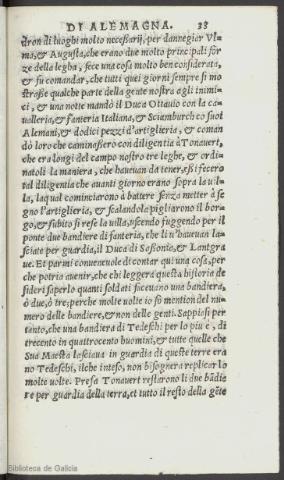 DI ALEMAGNA. 38
dron di luoghi molto necessarij, per dannegiar Vl=
ma, & Augusta, che erano due molto principali for
ze della legha, fece una cosa molto ben considerata,
& fu comandar, che tutti quei giorni sempre si mo
strasse qualche parte della gente nostra agli inimi=
ci, & una notte mandò il Duca Ottauio con la ca=
ualleria, & fanteria Italiana, & Sciamburch co suoi
Alemani, & dodici pezzi d'artiglieria, & coman
dò loro che caminassero con diligentia à Tonauert,
che era longi del campo nostro tre leghe, & ordi=
natoli la maniera, che haueuan da tener, essi fecero
tal diligentia che auanti giorno erano sopra la uil=
la, laqual cominciarono à battere senza metter à se
gno l'artiglieria, & scalandola pigliarono il bor=
go, & subito si rese la uilla, uscendo fuggendo per il
ponte due bandiere di fanteria, che li u'haueuan la=
sciate per guardia, il Duca di Sassonia, & Lantgra
ue. Et parmi conueneuole di contar qui una cosa, per
che potria auenir, che chi leggera questa historia de
sideri saperlo quanti soldati faceuano una bandiera,
ò due, ò tre; perche molte uolte io fò mention del nu=
mero delle bandiere, & non delle genti. Sappiasi per
tanto, che una bandiera di Tedeschi per lo piu è, di
trecento in quattrocento huomini, & tutte quelle che
Sua Maesta lasciaua in guardia di queste terre era
no Tedeschi, ilche inteso, non bisognera replicarlo
molte uolte. Presa Tonauert restarono li due bādie
re per guardia della terra, et tutto il resto della gēte
Biblioteca de Galicia